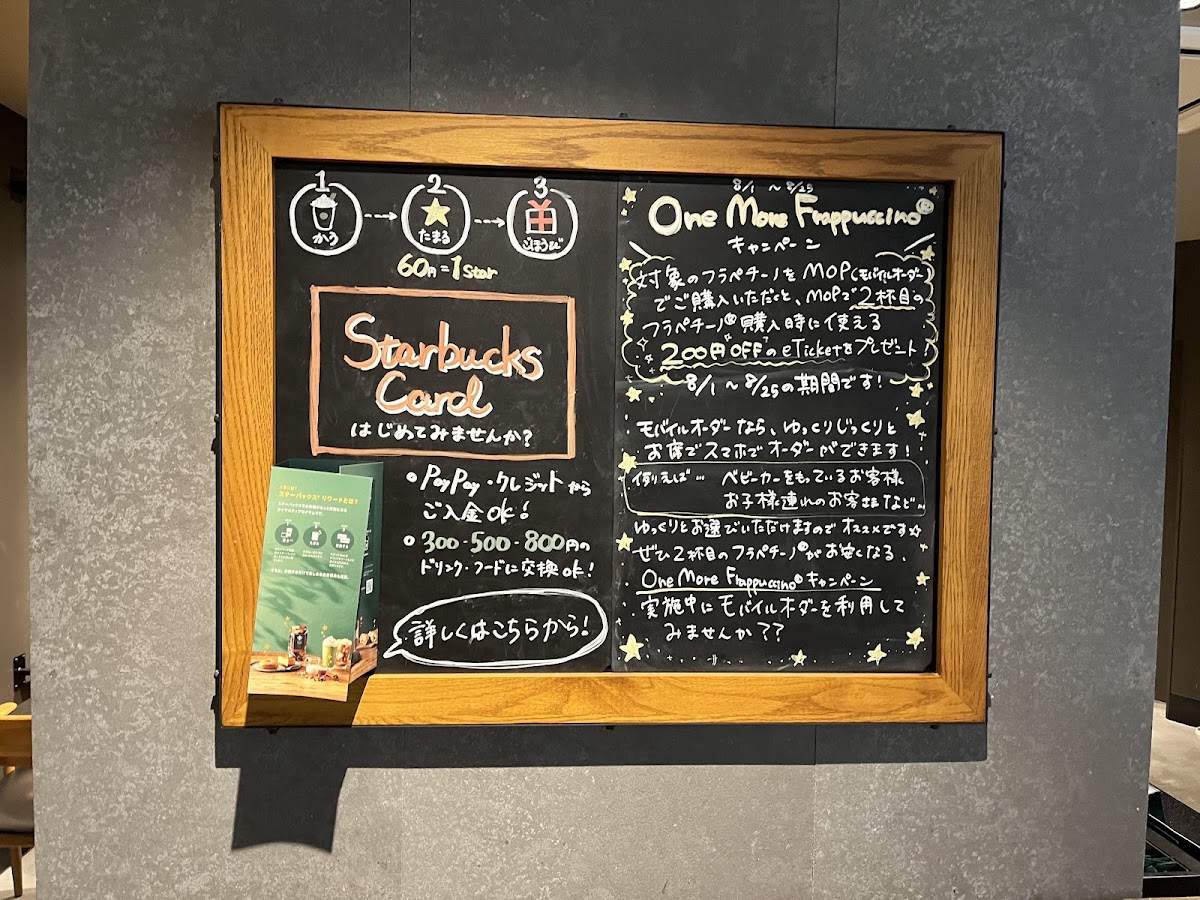 1
2
3
かう
たまる
ごほうび
60円=1Star
Starbucks
Card
はじめてみませんか?
• PayPay・クレジットから
ご入金ok!
• 300・500・800円の
ドリンク・フードに交換ok!
詳しくはこちらから!
スターバックス® リワードとは?
8/1 ~ 8/25
One More Frappuccino®
キャンペーン
対象のフラペチーノをMOP(モバイルオーダー)
でご購入いただくと、MOPで2杯目の
フラペチーノ®購入時に使える
200円OFFのeTicketをプレゼント!
8/1 ~ 8/25の期間です!
モバイルオーダーなら、ゆっくりじっくりと
お席でスマホでオーダーができます!
例えば… ベビーカーをもっているお客様
お子様連れのお客様など…
ゆっくりとお選びいただけますのでオススメです☆
ぜひ2杯目のフラペチーノ®がお安くなる、
One More Frappuccino®キャンペーン
実施中にモバイルオーダーを利用して
みませんか??